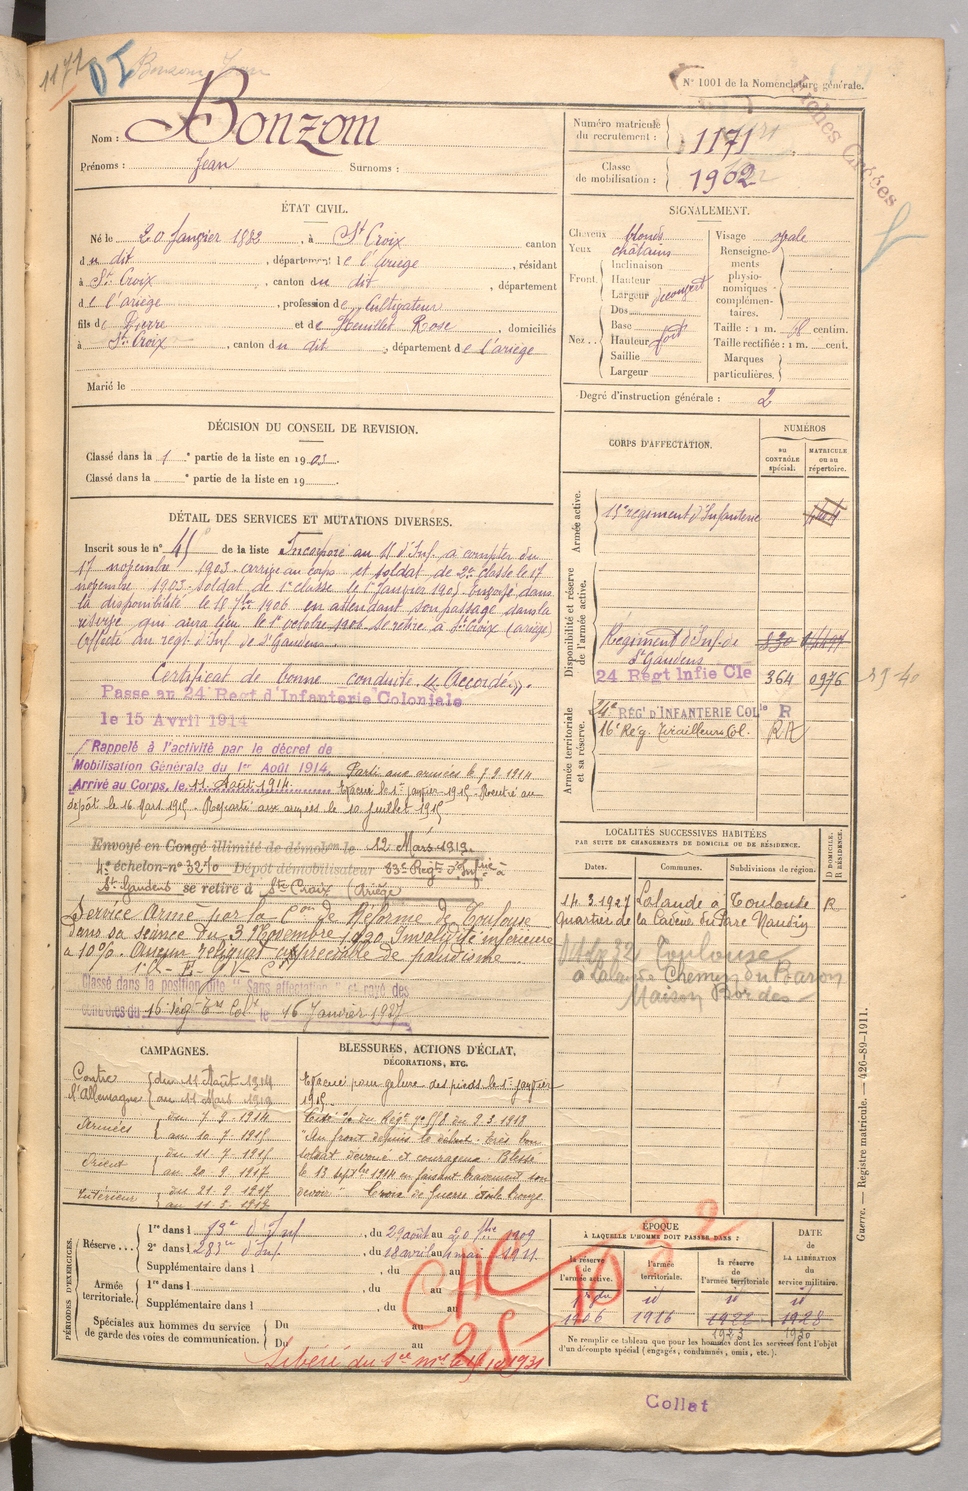 1171
Bonzom Jean
N° 1001 de la Nomenclature générale.
Nom : Bonzom
Prénoms : Jean Surnoms :
Numéro matricule du recrutement : 1171
Classe de mobilisation : 1902
ÉTAT CIVIL.
Né le 20 Janvier 1882, à St Croix canton
du dit, département de l'ariège, résidant
à St Croix, canton du dit, département
de l'ariège, profession de Cultivateur
fils de Pierre et de Rose, domiciliés
à St Croix, canton du dit, département de l'ariège
Marié le
SIGNALEMENT.
Cheveux blonds
Yeux châtains
Front Inclinaison
Hauteur
Largeur découvert
Nez Dos
Base
Hauteur fort
Saillie
Largeur
Visage ovale
Renseignements physionomiques complémentaires.
Taille : 1 m. 68 centim.
Taille rectifiée : 1 m. cent.
Marques particulières.
Degré d'instruction générale : 2
DÉCISION DU CONSEIL DE REVISION.
Classé dans la 1e partie de la liste en 1903.
Classé dans la e partie de la liste en 19
CORPS D'AFFECTATION.
NUMÉROS
au contrôle spécial.
matricule ou au répertoire.
Armée active.
15e régiment d'Infanterie
Disponibilité et réserve de l'armée active.
Régiment d'Inf de St Gaudens 830
24 Régt Infie Cle 364 0976
Armée territoriale et sa réserve.
24e RÉGt D'INFANTERIE COLle R
16e Rég. Tirailleurs Col. RA
DÉTAIL DES SERVICES ET MUTATIONS DIVERSES.
Inscrit sous le n° 45 de la liste Incorporé au d'Inf. à compter du
17 novembre 1903. arrivé au corps et soldat de 2e classe le 17
novembre 1903. soldat de 1e classe le 1er Janvier 1905. Envoyé dans
la disponibilité le 18 7bre 1906 en attendant son passage dans la
réserve qui aura lieu le 1er octobre 1906. Se retire à St Croix (ariège)
Affecté au régt d'Inf de St Gaudens
Certificat de bonne conduite "Accordé".
Passé au 24e Régt d'Infanterie Coloniale
le 15 Avril 1914
Rappelé à l'activité par le décret de
Mobilisation Générale du 1er Août 1914. Parti aux armées le 7.9.1914
Arrivé au Corps, le 11 Août 1914. Evacué le 1er janvier 1915. Rentré au
dépôt le 16 Mars 1915. Reparti aux armées le 10 juillet 1915
Envoyé en Congé illimité de démob.on le 12 Mars 1919.
4e échelon n° 3270 Dépôt démobilisateur 83e Régt d'Infrie à
St Gaudens se retire à Ste Croix (Ariège)
Service Armé par la Con de Réforme de Toulouse
dans sa séance du 3 Novembre 1920 Invalidité inférieure
à 10%. Aucun reliquat appréciable de paludisme.
Classé dans la position dite "Sans affectation" et rayé des
contrôles du 16 rég Tir Colx le 16 Janvier 1927
LOCALITÉS SUCCESSIVES HABITÉES
PAR SUITE DE CHANGEMENTS DE DOMICILE OU DE RÉSIDENCE.
Dates. Communes. Subdivisions de région. D DOMICILE. R RÉSIDENCE.
14.3.1927 Lalande à Toulouse R
Quartier de la
Toulouse
à Lalande Chemin du
Maison Bordes
CAMPAGNES.
Contre l'Allemagne du 11 Août 1914
au 11 Mars 1919
Armées du 7.9.1914
au 10.7.1915
Orient du 11.7.1915
au 20.9.1917
Intérieur du 21.9.1917
au 11.3.1919
BLESSURES, ACTIONS D'ÉCLAT,
DÉCORATIONS, ETC.
Evacué pour gelure des pieds le 1er janvier
1915.
Cité O/ du Régt n° 558 du 9.3.1918
"Au front depuis le début. très bon
soldat dévoué et courageux. Blessé
le 13 septbre 1914 en faisant bravement son
devoir" Croix de Guerre étoile bronze
PÉRIODES D'EXERCICES.
Réserve
1re dans l du 29 août au 20 1909
2e dans l 283e d'Inf, du 18 avril au 4 mai 1911
Supplémentaire dans l , du au
Armée territoriale.
1re dans l , du au
Supplémentaire dans l , du au
Spéciales aux hommes du service de garde des voies de communication. Du au
Du au
Libéré du sce mre le 1931
ÉPOQUE
À LAQUELLE L'HOMME DOIT PASSER DANS :
la réserve de l'armée active.
l'armée territoriale.
la réserve de l'armée territoriale
DATE DE LA LIBÉRATION du service militaire.
1er du
1906 1916 1922 1928
1923 1930
Ne remplir ce tableau que pour les hommes dont les services font l'objet
d'un décompte spécial (engagés, condamnés, omis, etc.).
Guerre. — Registre matricule. — 426-89-1911.
Collat